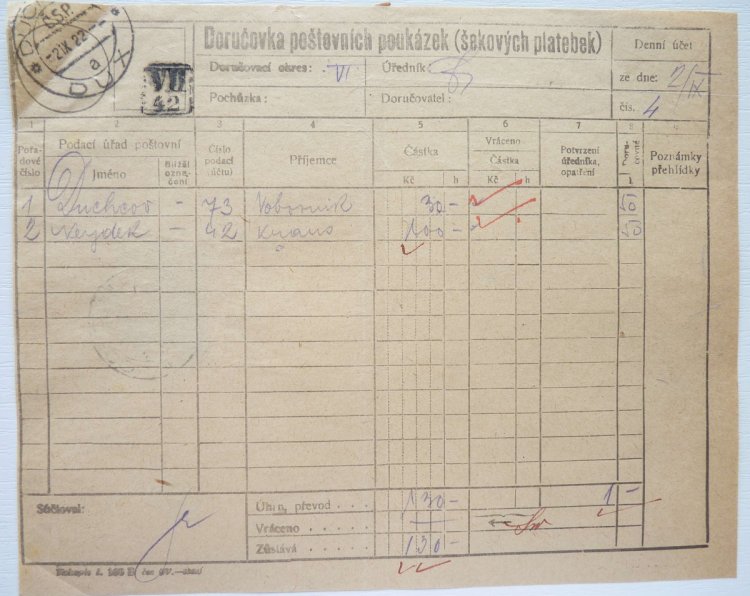 ČSP.
-2.IX.22.-
a
DUX
VII
42
Doručovka poštovních poukázek (šekových platebek)
Doručovací okres: VI
Úředník:
Pochůzka:
Doručovatel:
Denní účet
ze dne: 2/IX
čís. 4
1 2 3 4 5 6 7 8 9
Pořadové číslo
Podací úřad poštovní
Jméno
Bližší označení
Číslo podací (účtu)
Příjemce
Částka
Kč h
Vráceno
Částka
Kč h
Potvrzení úředníka, opatření
Poznámky přehlídky
1 Duchcov - 73 Voborník 30 -
2 Nejdek - 42 Kraus 100 -
Súčtoval:
Úhrn, převod . . . . 130 - 1 -
Vráceno . . . . . .
Zůstává . . . . . . 130 -